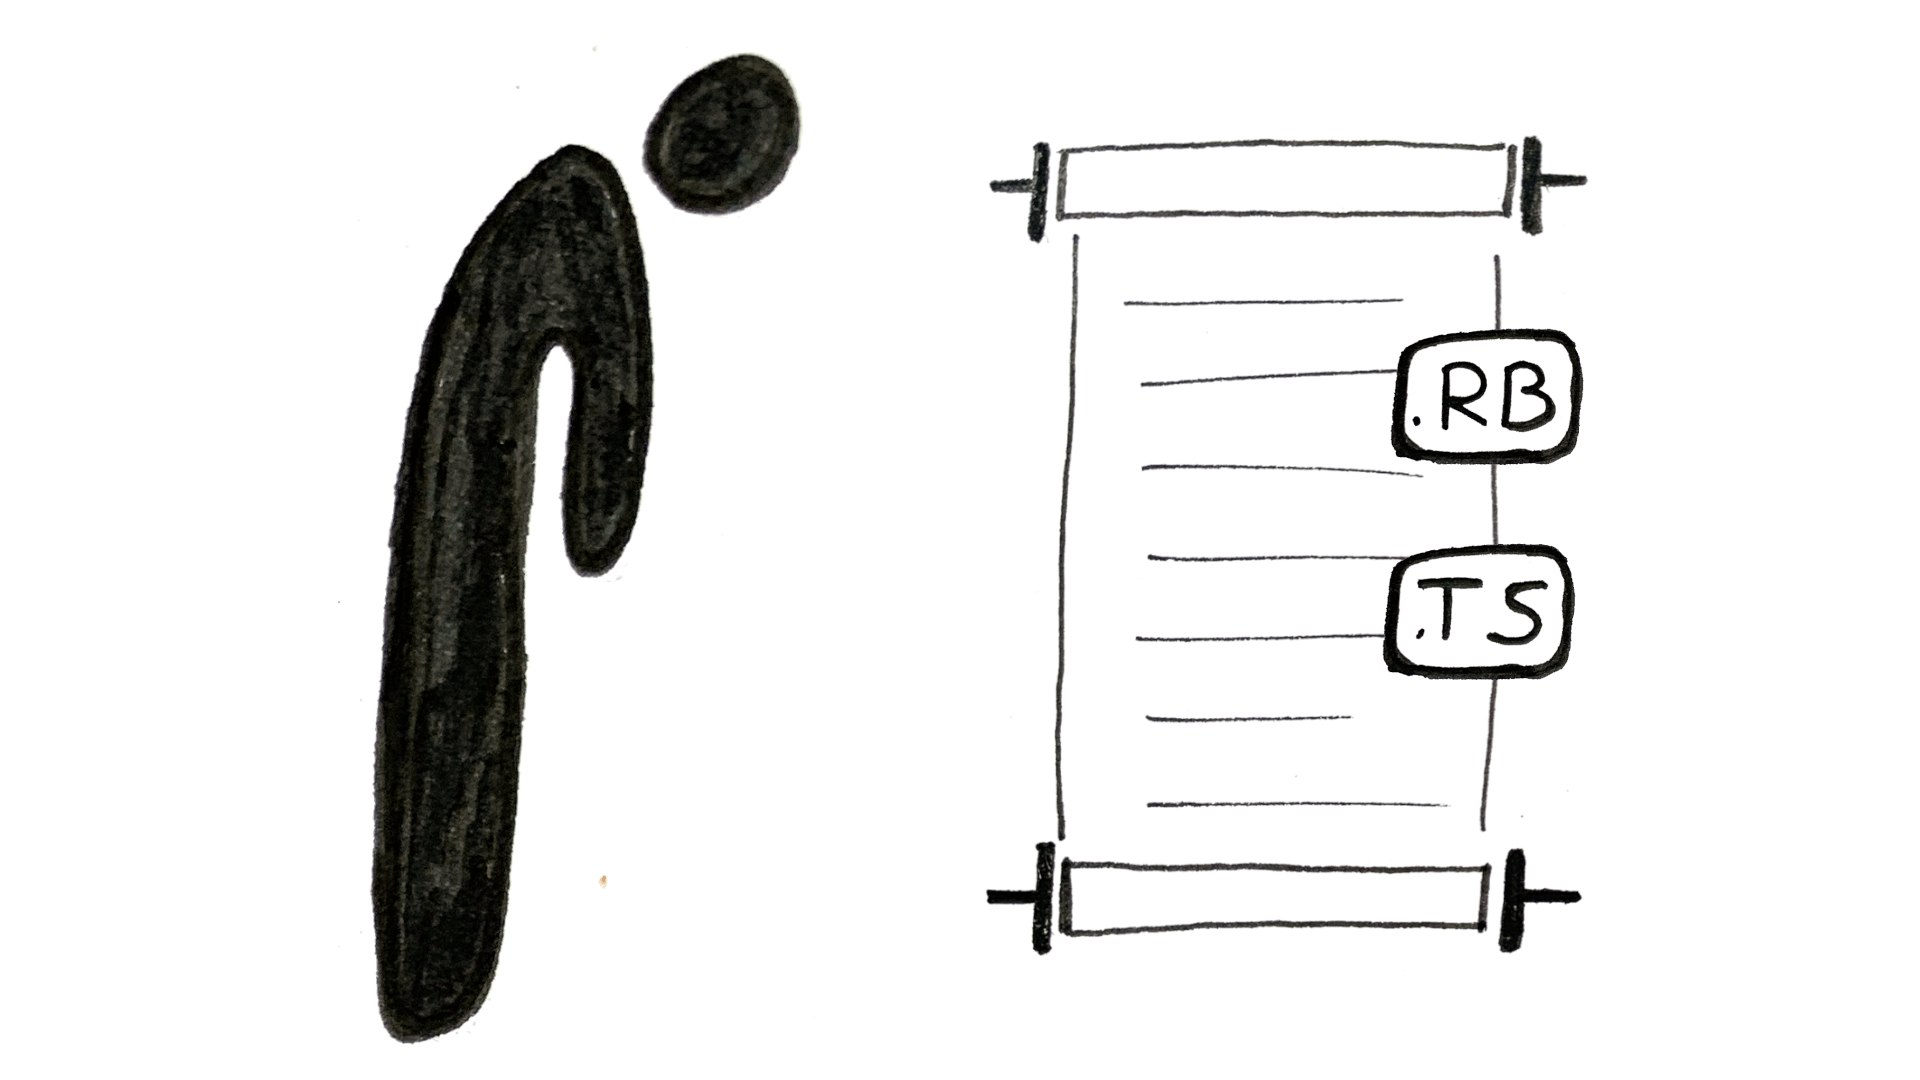 .RB
.TS